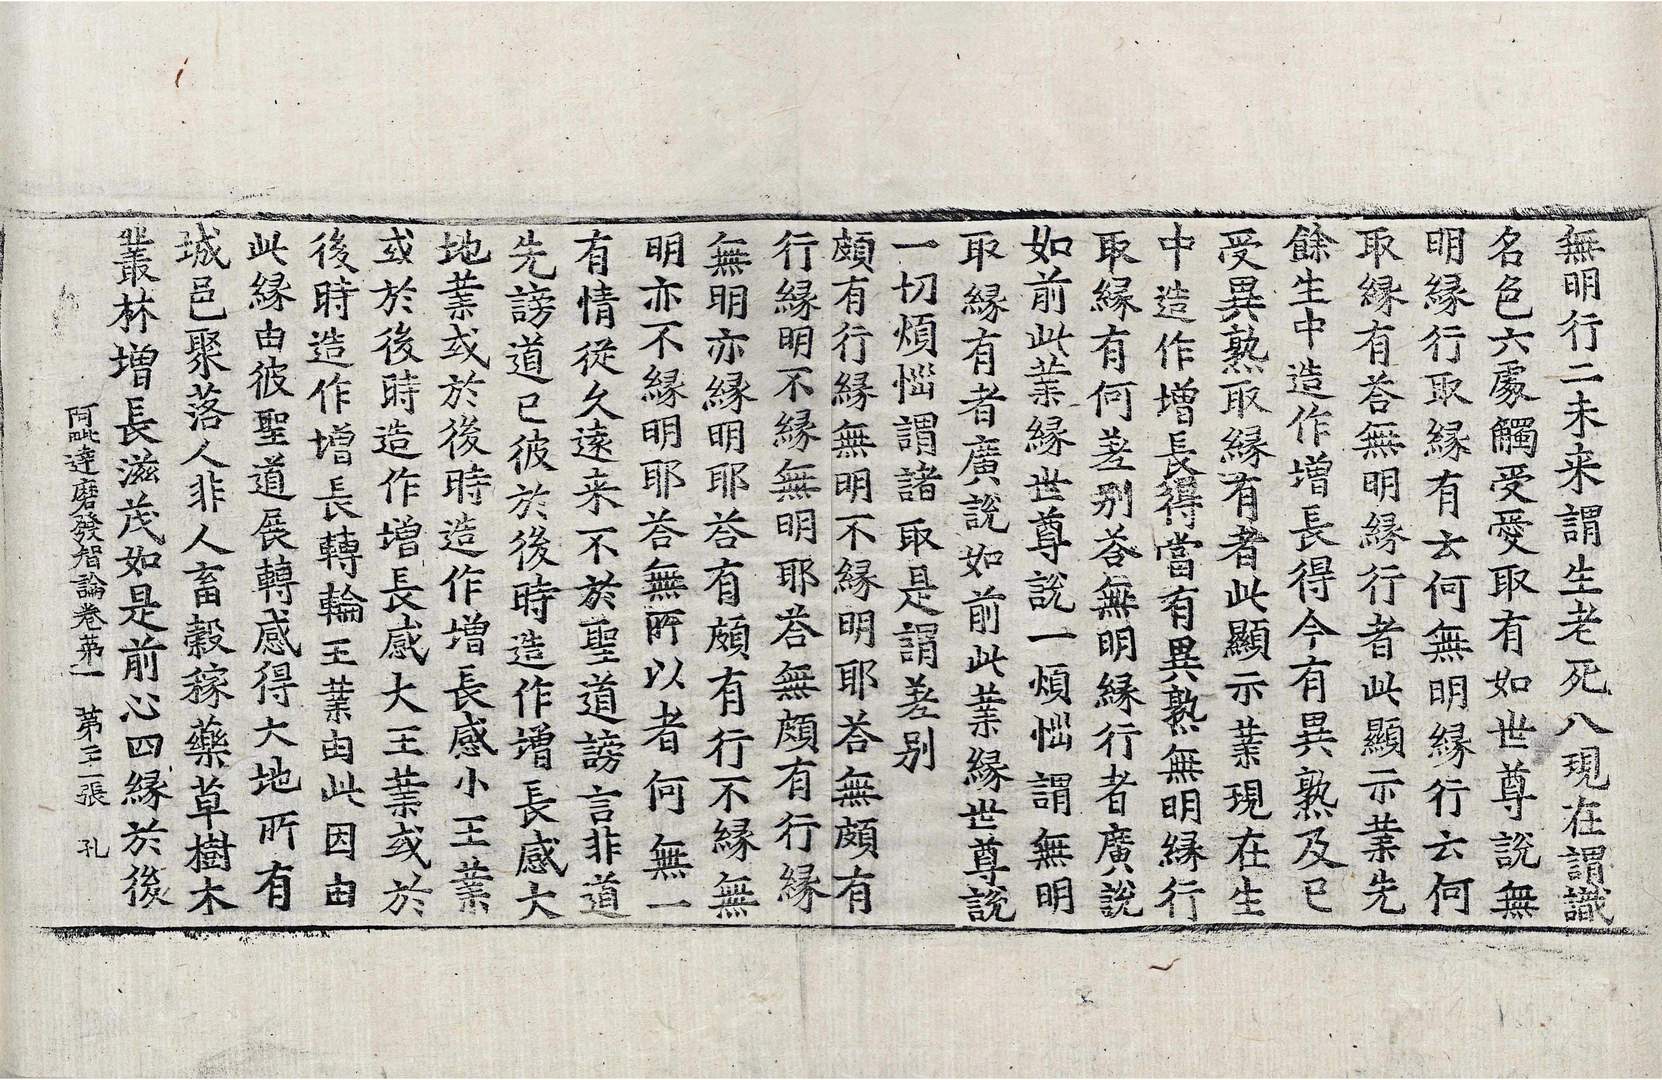 無明行二未来謂生老死八現在謂識
名色六處觸受愛取有如世尊說無
明緣行取緣有云何無明緣行云何
取緣有荅無明緣行者此顯示業先
餘生中造作增長得今有異熟及已
受異熟取緣有者此顯示業現在生
中造作增長得當有異熟無明緣行
取緣有何差别荅無明緣行者廣說
如前此業緣世尊說一煩惱謂無明
取緣有者廣說如前此業緣世尊說
一切煩惱謂諸取是謂差别
頗有行緣無明不緣明耶荅無頗有
行緣明不緣無明耶荅無頗有行緣
無明亦緣明耶荅有頗有行不緣無
明亦不緣明耶荅無所以者何無一
有情從久遠来不於聖道謗言非道
先謗道已彼於後時造作增長感大
地業或於後時造作增長感小王業
或於後時造作增長感大王業或於
後時造作增長轉輪王業由此因由
此緣由彼聖道展轉感得大地所有
城邑聚落人非人畜穀稼藥草樹木
叢林增長滋茂如是前心四緣於後
阿毗達磨發智論卷苐一　苐三張　孔